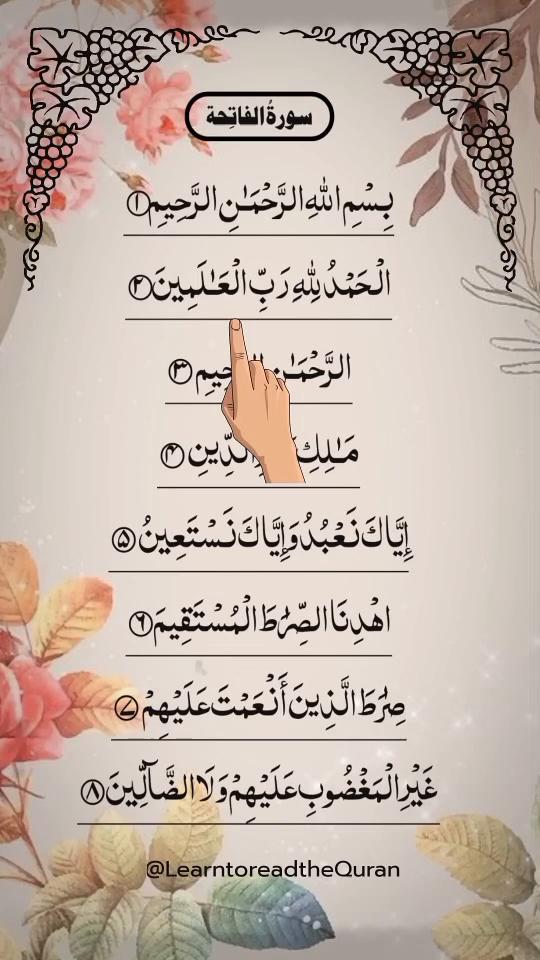 سورةُ الفَاتِحة
بِسْمِ اللهِ الرَّحْمَـٰنِ الرَّحِيمِ ١
الْحَمْدُ لِلهِ رَبِّ الْعَـٰلَمِينَ ٢
الرَّحْمَـٰنِ ٣
مَـٰلِكِ الدِّينِ ۴
إِيَّاكَ نَعْبُدُ وَإِيَّاكَ نَسْتَعِينُ ۵
اهْدِنَا الصِّرَٰطَ الْمُسْتَقِيمَ ۶
صِرَٰطَ الَّذِينَ أَنْعَمْتَ عَلَيْهِمْ ٧
غَيْرِ الْمَغْضُوبِ عَلَيْهِمْ وَلَا الضَّآلِّينَ ٨
@LearntoreadtheQuran